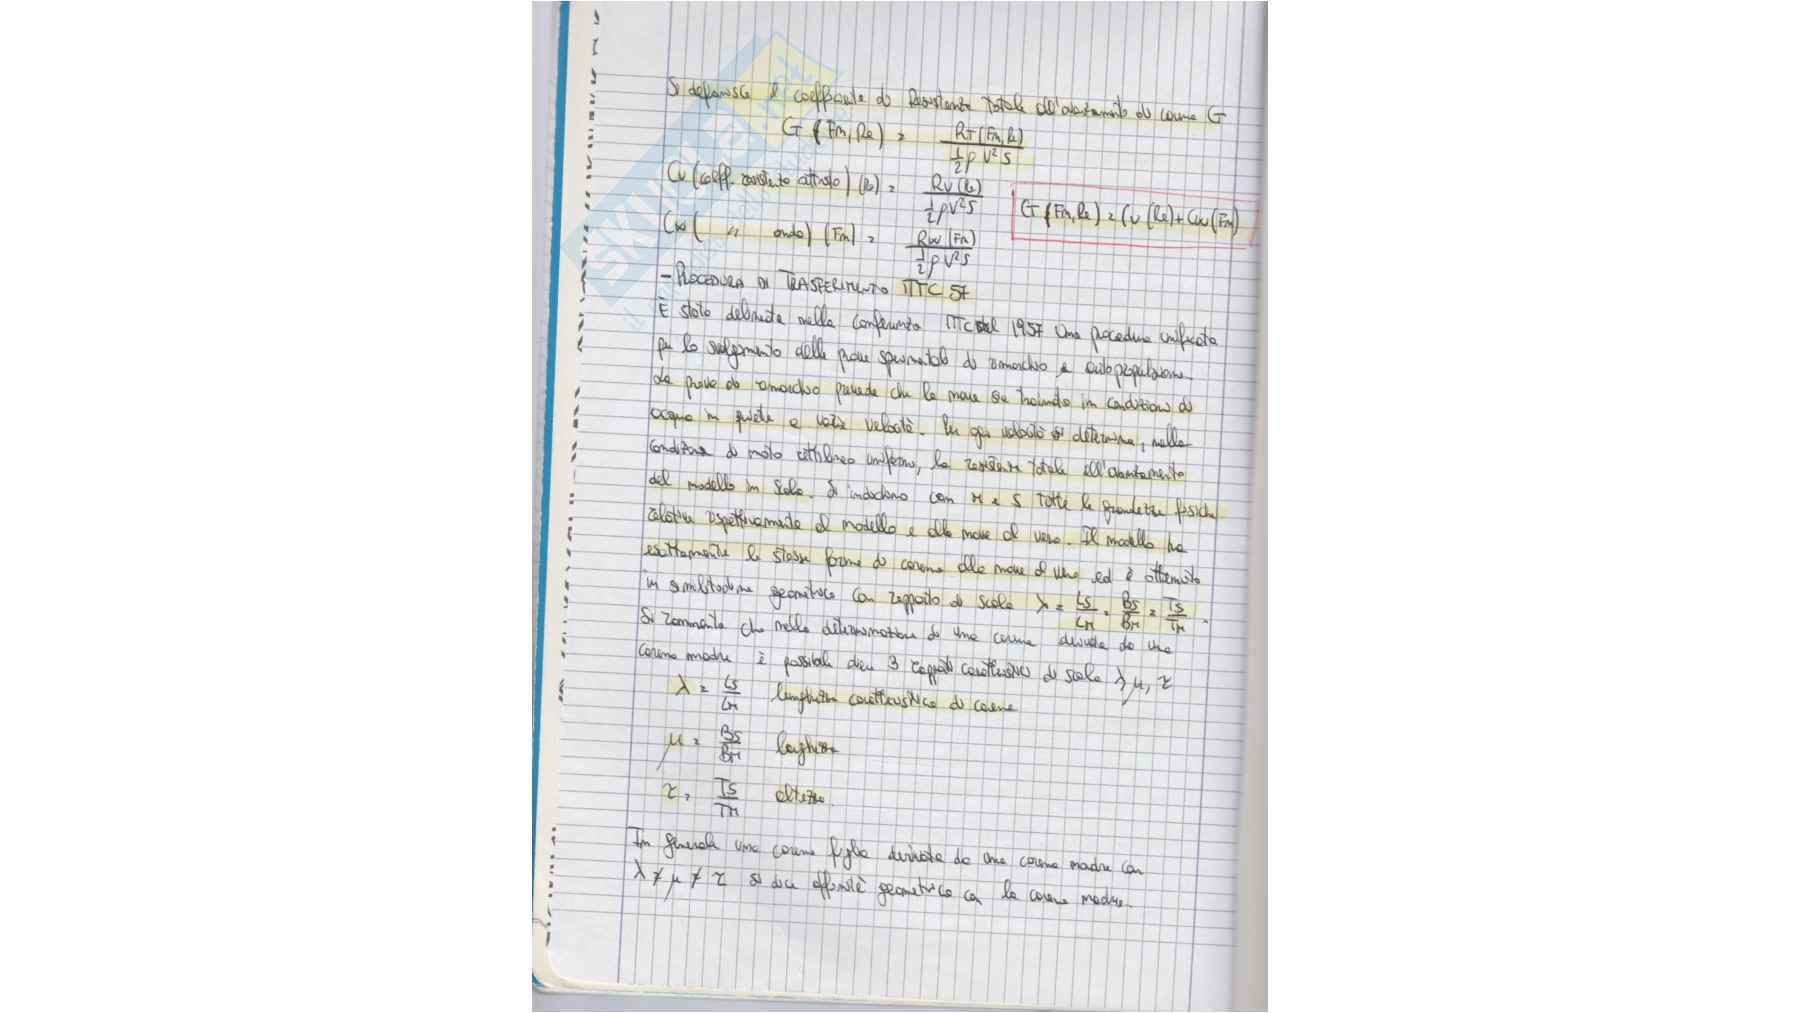 Si definisce il coefficiente di Resistenza totale all'avanzamento di carena CT
CT (Fn, Re) = RT (Fn, Re) / ½ ρ V² S
Cv (coeff. resistenza attrito) (Re) = Rv (Re) / ½ ρ V² S
CT (Fn, Re) = Cv (Re) + Cw (Fn)
Cw ( " onda) (Fn) = Rw (Fn) / ½ ρ V² S
- PROCEDURA DI TRASFERIMENTO ITTC 57
È stata delineata nella conferenza ITTC del 1957 una procedura unificata
per lo svolgimento delle prove sperimentali di rimorchio e autopropulsione.
La prova di rimorchio prevede che la nave sia trainata in condizioni di
acqua in quiete a varie velocità. Per ogni velocità si determina, nella
condizione di moto rettilineo uniforme, la resistenza totale all'avanzamento
del modello in scala. Si indichino con M e S tutte le grandezze fisiche
relative rispettivamente al modello e alla nave al vero. Il modello ha
esattamente la stessa forma di carena della nave al vero ed è ottenuto
in similitudine geometrica con rapporto di scala λ = LS/LM = BS/BM = TS/TM.
Si rammenta che nella determinazione di una carena derivata da una
carena madre è possibile dare 3 rapporti caratteristici di scala λ, μ, τ
λ = LS/LM lunghezza caratteristica di carena
μ = BS/BM larghezza
τ = TS/TM altezza.
In generale una carena figlia derivata da una carena madre con
λ ≠ μ ≠ τ si dice affinità geometrica con la carena madre.